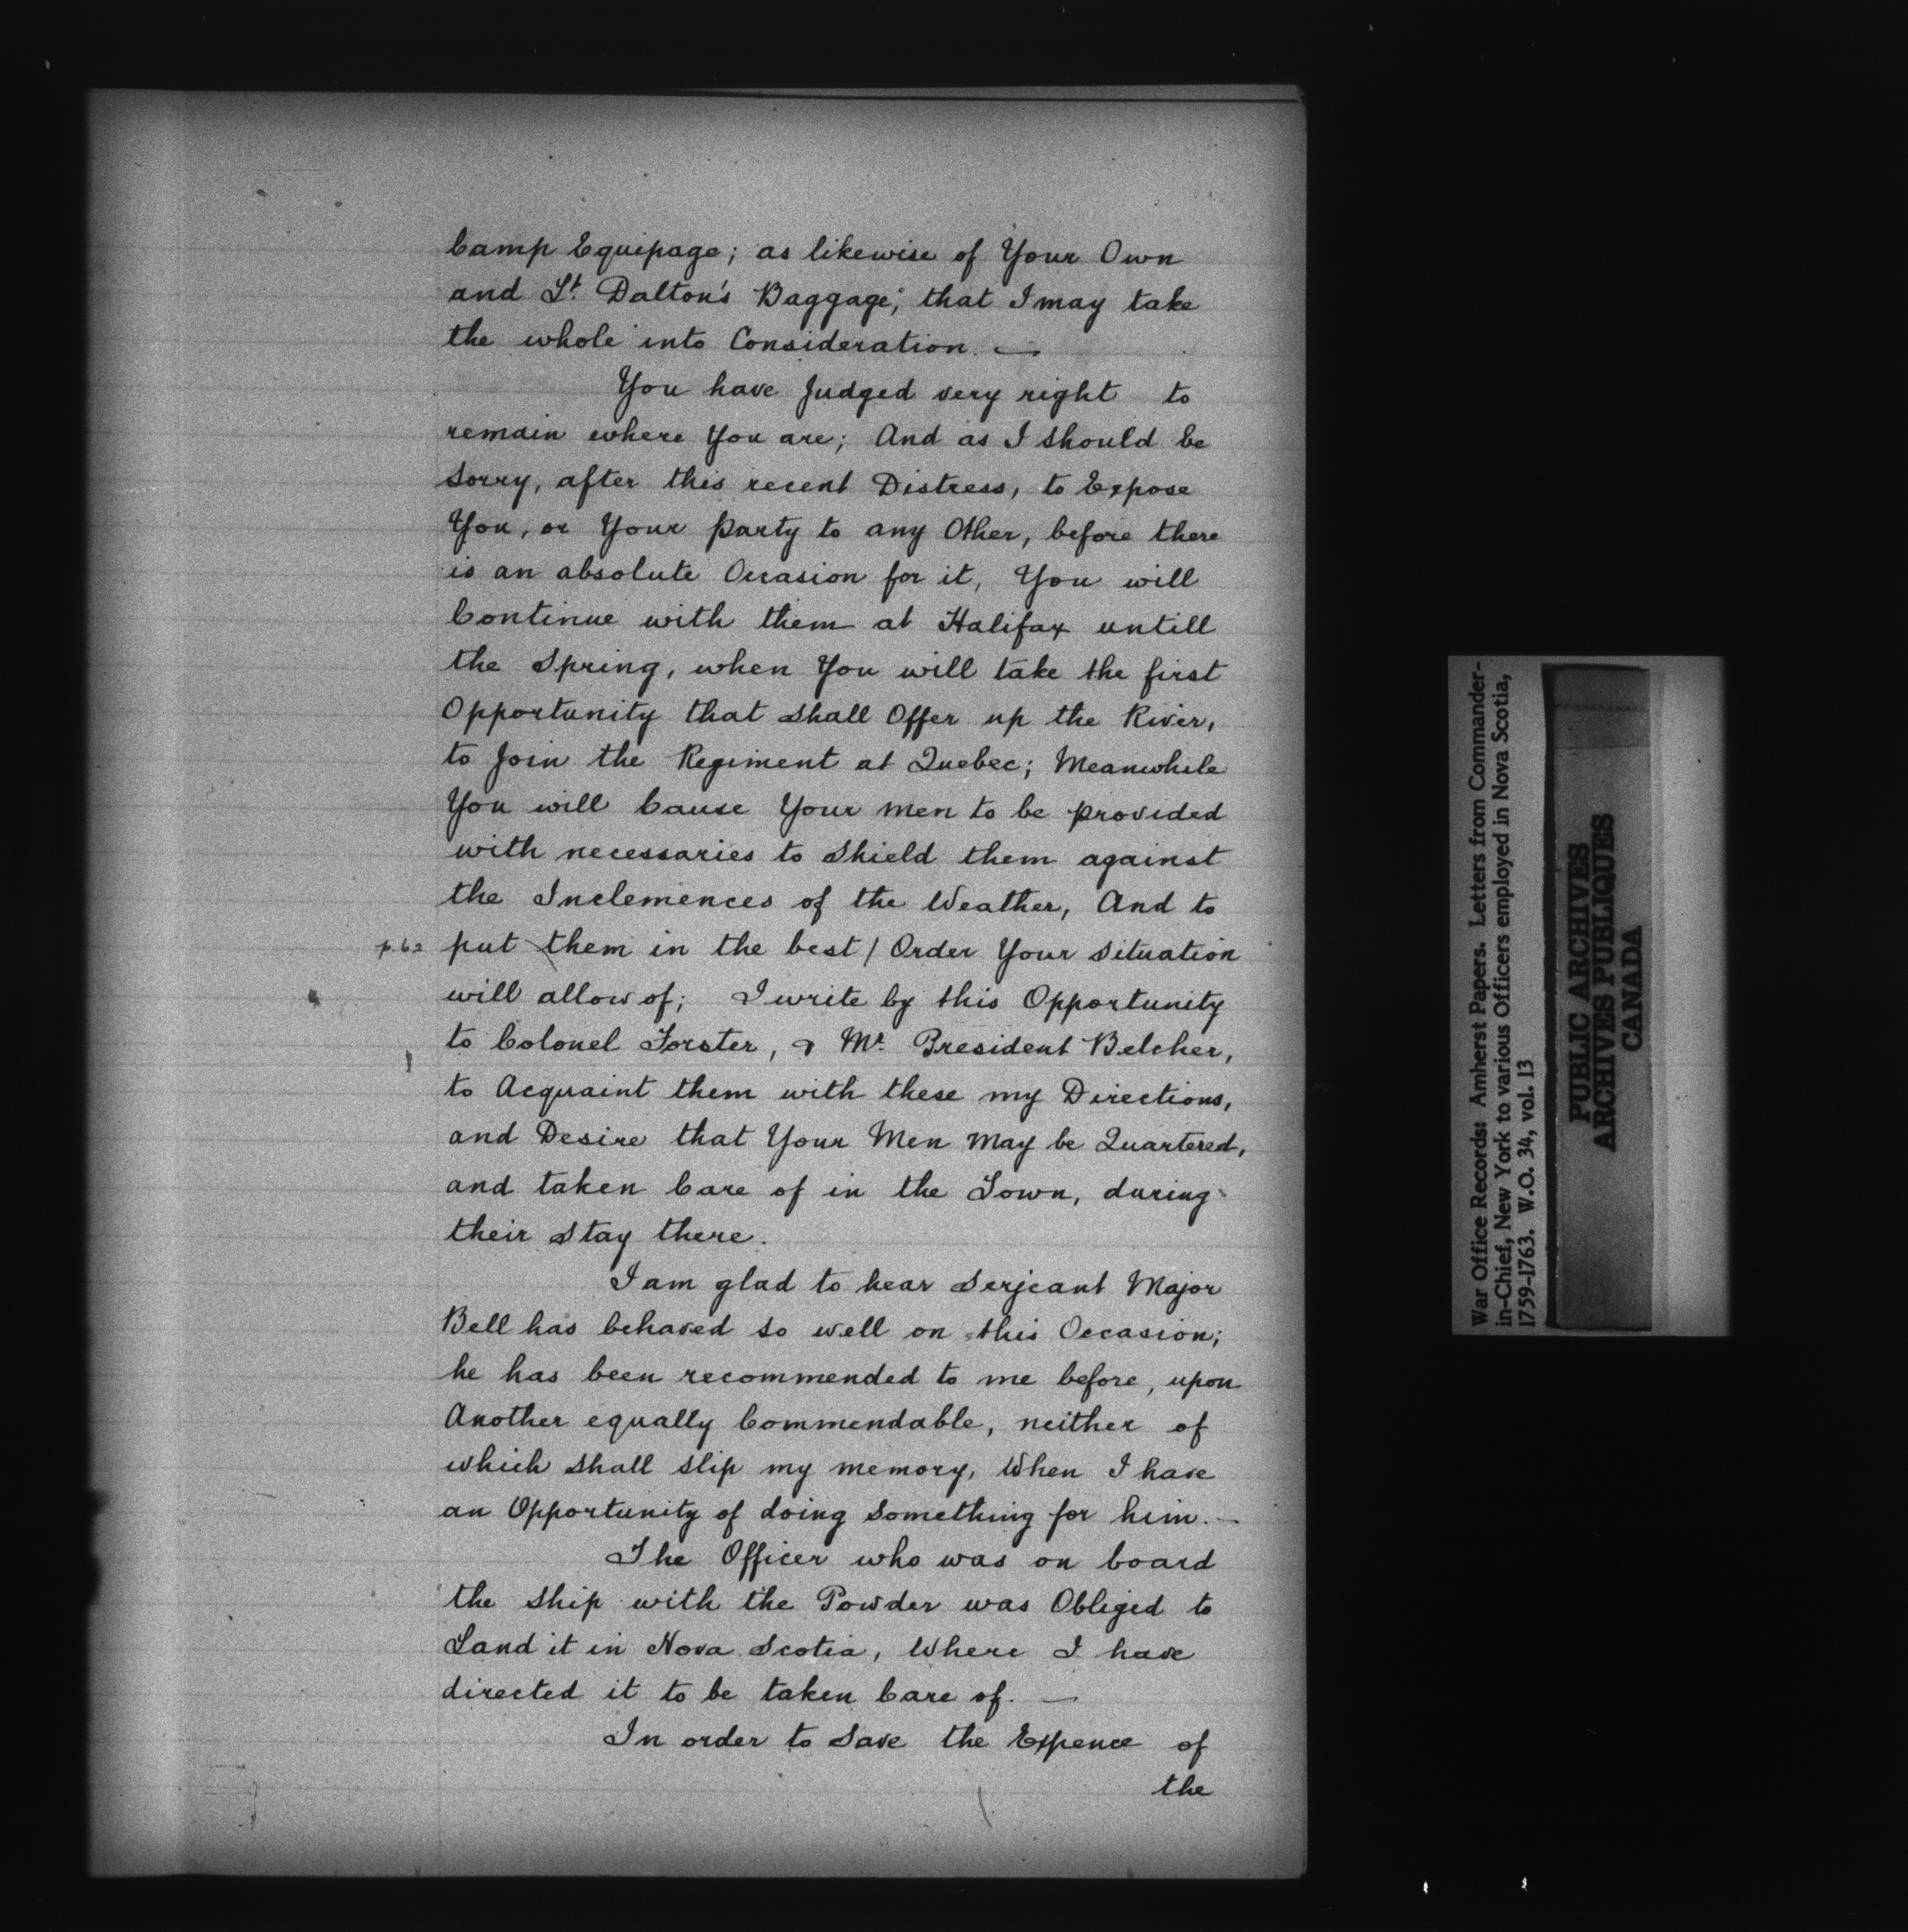 Camp Equipage; as likewise of Your Own
and Lt. Dalton's Baggage; that I may take
the whole into Consideration. —
You have Judged very right to
remain where You are; And as I should be
Sorry, after this recent Distress, to Expose
You, or Your Party to any Other, before there
is an absolute Occasion for it, You will
Continue with them at Halifax untill
the Spring, when You will take the first
Opportunity that Shall Offer up the River,
to Join the Regiment at Quebec; Meanwhile
You will Cause Your Men to be provided
with necessaries to Shield them against
the Inclemences of the Weather, And to
p. 62 put them in the best / Order Your Situation
will allow of; I write by this Opportunity
to Colonel Forster, & Mr. President Belcher,
to Acquaint them with these my Directions,
and Desire that Your Men May be Quartered,
and taken Care of in the Town, during
their Stay there.
I am glad to hear Serjeant Major
Bell has behaved so well on this Occasion;
he has been recommended to me before, upon
Another equally Commendable, neither of
which Shall Slip my memory, When I have
an Opportunity of doing Something for him. —
The Officer who was on board
the Ship with the Powder was Obliged to
Land it in Nova Scotia, Where I have
directed it to be taken Care of. —
In order to Save the Expence of
the
War Office Records: Amherst Papers. Letters from Commander-
in-Chief, New York to various Officers employed in Nova Scotia,
1759-1763. W.O. 34, vol. 13
PUBLIC ARCHIVES
ARCHIVES PUBLIQUES
CANADA